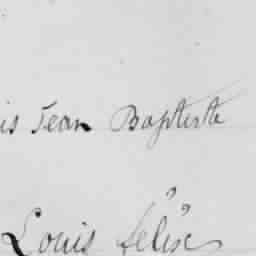 is Jean Baptiste
" "
Louis félix